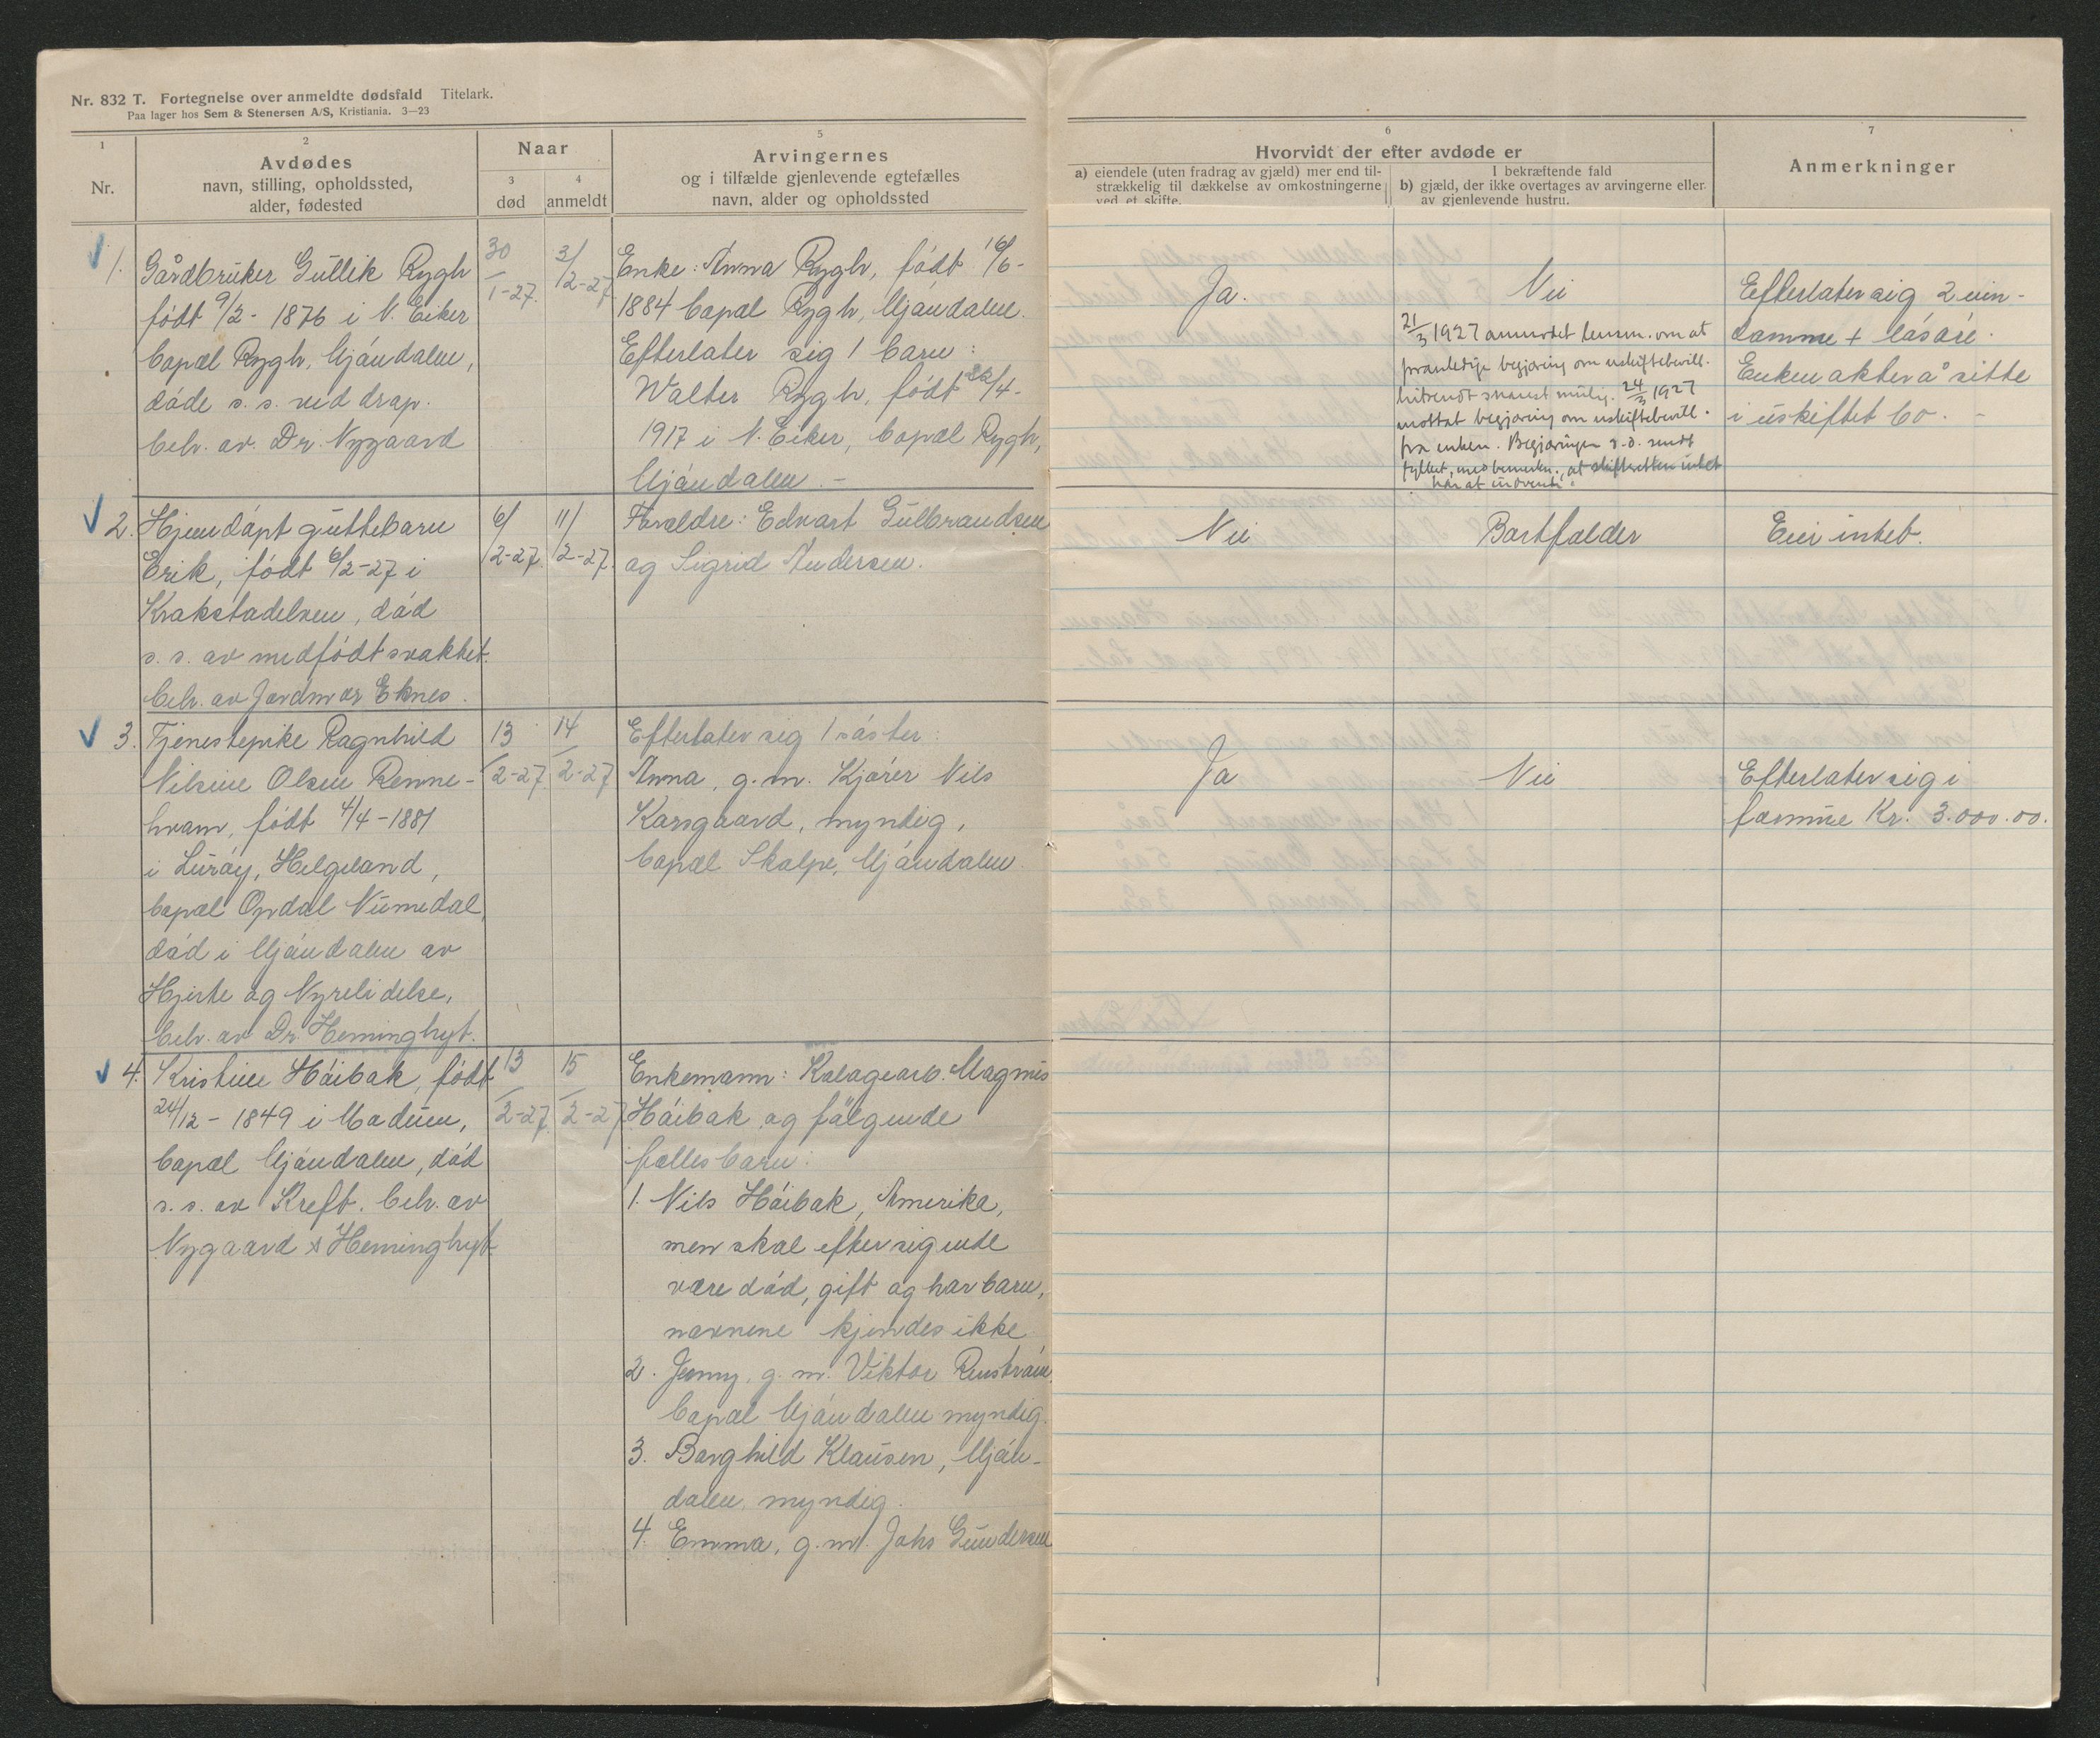 Nr. 832 T. Fortegnelse over anmeldte dødsfald Titelark.
Paa lager hos Sem & Stenersen A/S, Kristiania. 3—23
1
Nr.
2
Avdødes
navn, stilling, opholdssted,
alder, fødested
Naar
3
død
4
anmeldt
5
Arvingernes
og i tilfælde gjenlevende egtefælles
navn, alder og opholdssted
6
Hvorvidt der efter avdøde er
a) eiendele (uten fradrag av gjæld) mer end til-
strækkelig til dækkelse av omkostningerne
ved et skifte.
I bekræftende fald
b) gjæld, der ikke overtages av arvingerne eller
av gjenlevende hustru.
7
Anmerkninger
1. Gårdbruker Gullik Rygh
født 9/2 - 1876 i N. Eiker
bopæl Rygh, Mjøndalen,
døde s. s. ved drap.
beh. av. Dr. Nygaard
30/1-27.
3/2-27
Enke: Anna Rygh, født 16/6-
1884 bopæl Rygh, Mjøndalen.
Efterlater sig 1 barn:
Walter Rygh, født 22/4-
1917 i N. Eiker, bopæl Rygh,
Mjøndalen. -
Ja.
Nei
21/3 1927 anmodet lensm. om at
foranledige begjæring om uskiftebevill.
hitsendt snarest mulig. 24/3 1927
mottat begjæring om uskiftebevill.
fra enken. Begjæringen s. d. sendt
fylket, med bemerkn., at skifteretten intet
har at indvende.
Efterlater sig 2 ein-
domme + løsøre.
Enken akter å sitte
i uskiftet bo. -
2. Hjemdøpt guttebarn
Erik, født 6/2-27 i
Krokstadelven, død
s. s. av medfødt svakhet.
beh. av Jordmor Eknes.
6/2-27.
11/2-27.
Forældre: Edvart Gulbrandsen
og Sigrid Andersen.
Nei
Bortfalder
Eier intet.
3. Tjenestepike Ragnhild
Nilsine Olsen Renne-
hvam, født 4/4-1881
i Lurøy, Helgeland,
bopæl Opdal Numedal,
død i Mjøndalen av
Hjerte og Nyrelidelse,
beh. av Dr. Heminghyt.
13/2-27.
14/2-27
Efterlater sig 1 søster:
Anna, g. m. Kjører Nils
Korsgaard, myndig,
bopæl Skalpe, Mjøndalen
Ja
Nei
Efterlater sig i
formue Kr. 3.000.00.
4. Kristine Høibak, født
24/12 - 1849 i Modum,
bopæl Mjøndalen, død
s. s. av Kreft. beh. av
Nygaard & Heminghyt
13/2-27.
15/2-27
Enkemann: Kalagearb. Magnus
Høibak og følgende
fælles barn:
1. Nils Høibak, Amerika,
men skal eftersigende
være død, gift og har barn,
navnene kjendes ikke
2. Jenny, g. m. Viktor
bopæl Mjøndalen myndig.
3. Borghild Klausen, Mjøn-
dalen, myndig.
4. Emma, g. m. Johs Gundersen